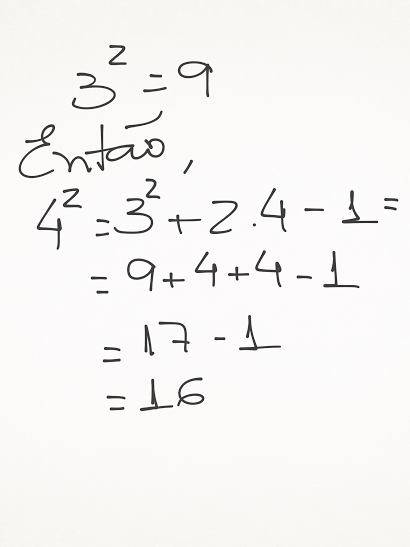 3² = 9
Então,
4² = 3² + 2.4 - 1 =
= 9 + 4 + 4 - 1
= 17 - 1
= 16